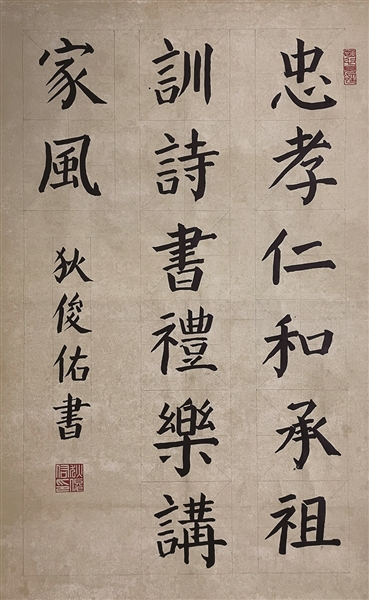 忠孝仁和承祖
訓詩書禮樂講
家風
狄俊佑書